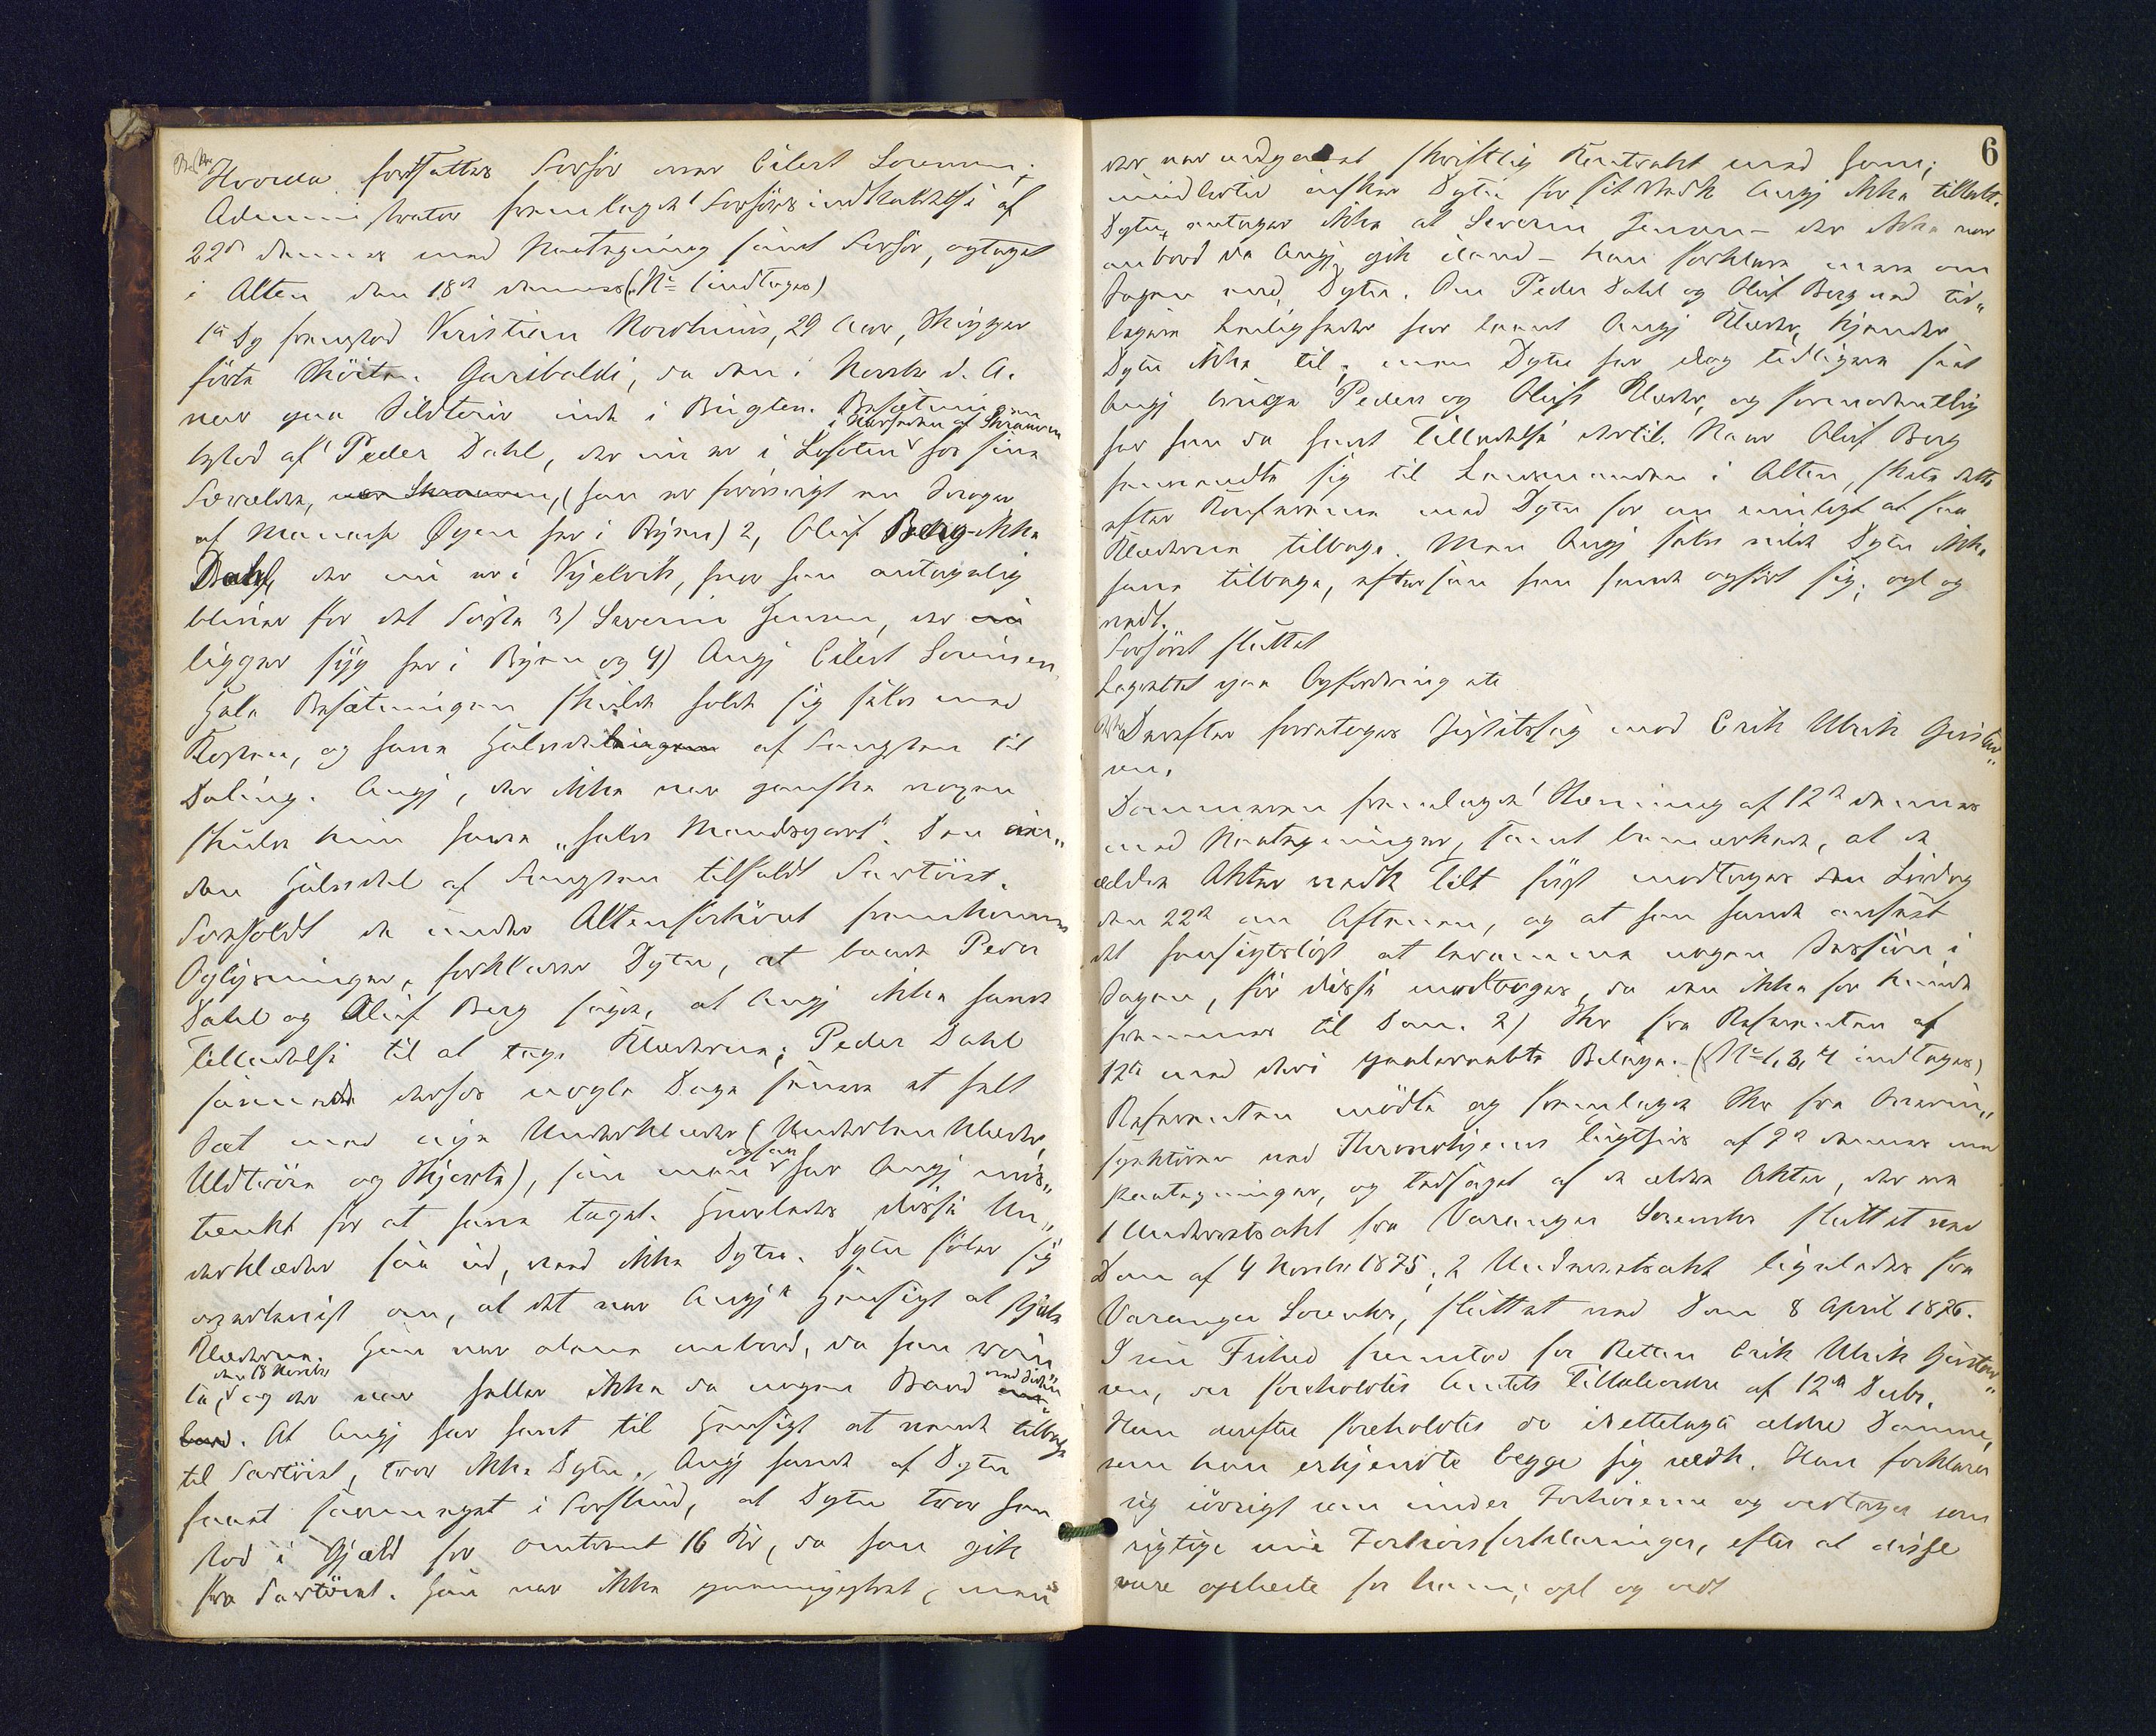 Hvorda fortsattes Forhør over Eilert Sørensen.
Administrator fremlagde Forhørsindkaldelse af
22de dennes med Paategning samt Forhør, optaget
i Alten den 18de dennes (No 1 indtages)
1te Dp fremstod Kristian Nordhuus, 29 Aar, Skipper
førte Skøite Garibaldi, da den i Novbr d. A.
var paa Sildtour inde i Bugten. Besætningen
i Nærheden af Skraaven
bestod af Peder Dahl, der nu er i Lofoten hos sine
Forældre, (han er forøvrigt en
af her i Byen) 2, Oluf Berg ikke
Dahl, der nu er i Kjelvik, hvor han antagelig
bliver for det Første 3) Severin Jensen, der nu
ligger syg her i Byen og 4) Angj Eilert Sørensen
Hele Besætningen skulde holde sig selv med
Kosten, og have Halvdelen af Fangsten til
Deling. Angj, der ikke var ganske voxen
skulde kun have "halv Mandspart". Den an-
den Halvdel af Fangsten tilfaldt Fartøiet.
Foreholdt de under Altenforhøret fremkomne
Oplysninger, forklarer Dptn, at baade Peder
Dahl og Oluf Berg sagde, at Angj ikke havde
Tilladelse til at tage Klæderne; Peder Dahl
savnede derhos nogle Dage senere et helt
Sæt med nye Underklæder (Underbenklæder,
Uldtrøie og Skjorte), som man ogsaa har Angj mis-
tænkt for at have taget. Hvorledes disse Un-
derklæder saa ud, ved ikke Dptn. Dptn føler sig
overbevist om, at det var Angjs Hensigt at stjæle
Klæderne. Han var alene ombord, da han røm-
te, den 18 Novbr og der var heller ikke da nogen Baad ved Siden
At Angj har havt til Hensigt at vende tilbage
til Fartøiet, tror ikke Dptn. Angj havde af Dptn
faaet saameget i Forskud, at Dptn tror han
stod i Gjæld for omtrent 16 Kr, da han gik
fra Fartøiet. Han var ikke paamønstret, men
6
der var oprettet skriftlig Kontrakt med ham;
imidlertid ønsker Dptn for sit Vedk Angj ikke tiltalt.
Dptn antager ikke at Severin Jensen – der ikke var
ombord da Angj gik iland – kan forklare mere om
Sagen end Dptn. Om Peder Dahl og Oluf Berg ved tid-
ligere Leiligheder har laant Angj Klæder, kjender
Dptn ikke til; men Dptn har dog tidligere seet
Angj bruge Peders og Olufs Klæder, og formodentlig
har han da havt Tilladelse dertil. Naar Oluf Berg
henvendte sig til Lensmanden i Alten, skete dette
efter Konference med Dptn for om muligt at faa
Klæderne tilbage. Men Angj selv vilde Dptn ikke
have tilbage, eftersom han havde opført sig; opl og
vedt.
Forhøret sluttet
Lagrettet paa Opfordring etc
Derefter foretoges Justitssag mod Erik Ulrik Gustav-
sen.
Dommeren fremlagde 1 Stevning af 12te dennes
med Paategninger, samt bemærkede, at de
ældre Akter vedk Tilt først modtoges den Lørdag
den 22de om Aftenen, og at han havde anseet
det hensigtsløst at beramme nogen Session i
Sagen, før disse modtoges, da den ikke før kunde
fremmes til Dom. 2) Skr fra Referenten af
17de med deri paaberaabte Bilage. (No 1, 3, 4 indtages)
Referenten mødte og fremlagde Skr fra
spektøren ved Throndhjems Tugthus af 9de dennes med
Paategninger, og ledsaget af de ældre Akter, der ere
1 Underretsakt fra Varanger Sorenskr sluttet ved
Dom af 4 Novbr 1875; 2 Underretsakt ligeledes fra
Varanger Sorenskr, sluttet ved Dom 8 April 1876.
I sin Frihed fremstod for Retten Erik Ulrik Gustav-
sen, der foreholdtes Amtets Tiltaleordre af 12te Decbr.
Han derefter foreholdtes de irettelagte ældre Domme,
som han erkjendte begge sig vedk. Han forklarer
sig iøvrigt som under Forhørerne og vedtoges som
rigtige sine Forhørsforklaringer, efter at disse
vare oplæste for ham; opl og vedt